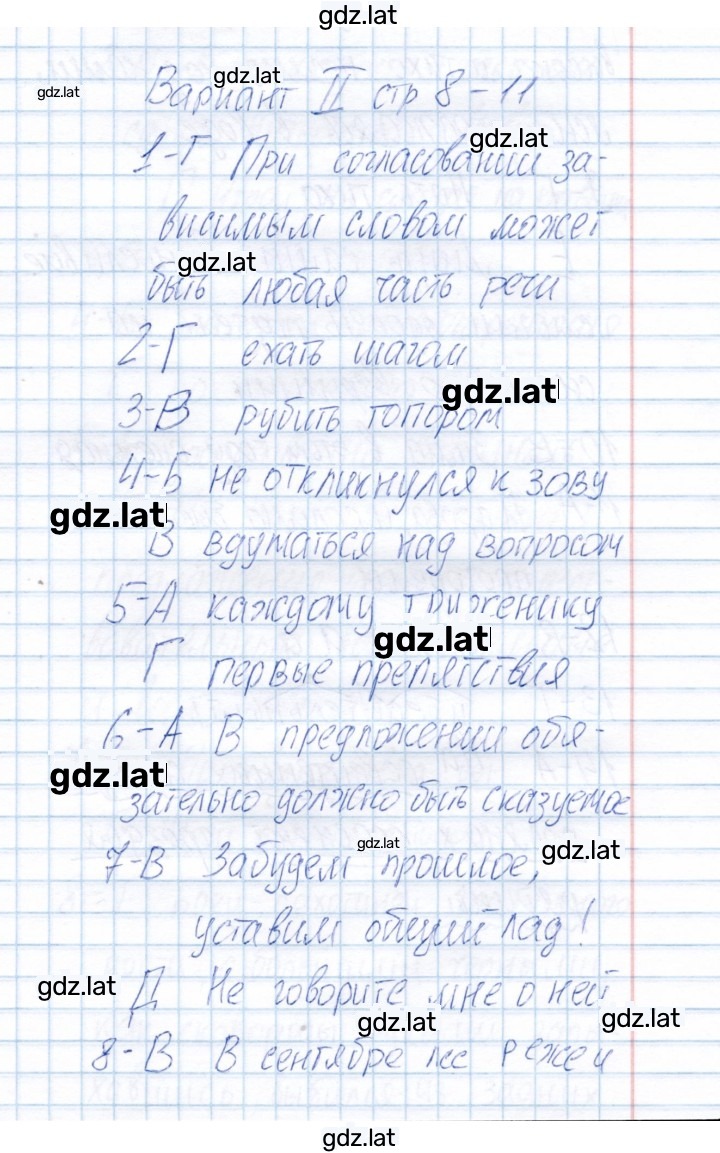 gdz.lat
gdz.lat
gdz.lat
Вариант II стр 8-11
gdz.lat
1-Г При согласовании за-
висимым словом может
gdz.lat
быть любая часть речи
2-Г ехать шагом
gdz.lat
3-В рубить топором
4-Б не откликнулся к зову
gdz.lat
В вдуматься над вопросом
5-А каждому труженику
gdz.lat
Г первые препятствия
6-А В предложении обя-
gdz.lat
зательно должно быть сказуемое
gdz.lat
gdz.lat
7-В Забудем прошлое,
уставим общий лад!
gdz.lat
Д Не говорите мне о ней
gdz.lat
gdz.lat
8-В В сентябре лес реже и
gdz.lat